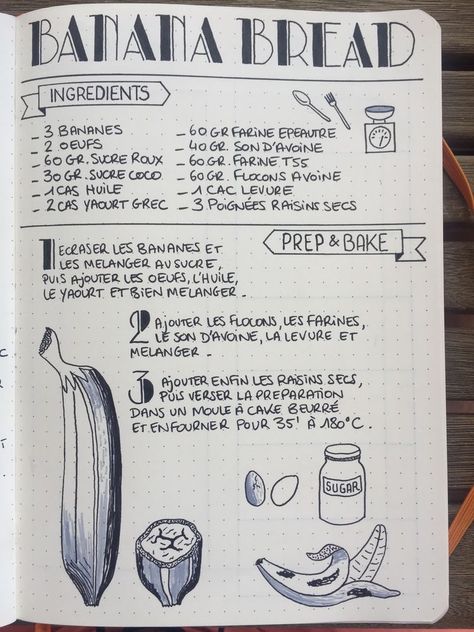 BANANA BREAD
INGREDIENTS
_ 3 BANANES
_ 2 OEUFS
_ 60 GR. SUCRE ROUX
_ 30 GR. SUCRE COCO
_ 1 CAS HUILE
_ 2 CAS YAOURT GREC
_ 60 GR FARINE EPEAUTRE
_ 40 GR. SON D'AVOINE
_ 60 GR. FARINE T55
_ 60 GR. FLOCONS AVOINE
_ 1 CAC LEVURE
_ 3 POIGNÉES RAISINS SECS
PREP & BAKE
1 ECRASER LES BANANES ET
LES MELANGER AU SUCRE,
PUIS AJOUTER LES OEUFS, L'HUILE,
LE YAOURT ET BIEN MELANGER.
2 AJOUTER LES FLOCONS, LES FARINES,
LE SON D'AVOINE, LA LEVURE ET
MELANGER.
3 AJOUTER ENFIN LES RAISINS SECS,
PUIS VERSER LA PREPARATION
DANS UN MOULE À CAKE BEURRÉ
ET ENFOURNER POUR 35' À 180°C.
SUGAR